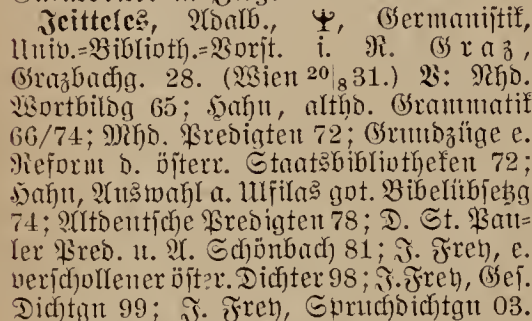 Jeitteles, Adalb., Ψ, Germanistik,
Univ.=Biblioth.=Vorst. i. R. Graz,
Grazbachg. 28. (Wien 20|8 31.) V: Nhd.
Wortbildg 65; Hahn, althd. Grammatik
66/74; Mhd. Predigten 72; Grundzüge e.
Reform d. österr. Staatsbibliotheken 72;
Hahn, Auswahl a. Ulfilas got. Bibelübsetzg
74; Altdeutsche Predigten 78; D. St. Pau=
ler Pred. u. A. Schönbach 81; J. Frey, e.
verschollener österr. Dichter 98; J. Frey, Ges.
Dichtgn 99; J. Frey, Spruchdichtgn 03.